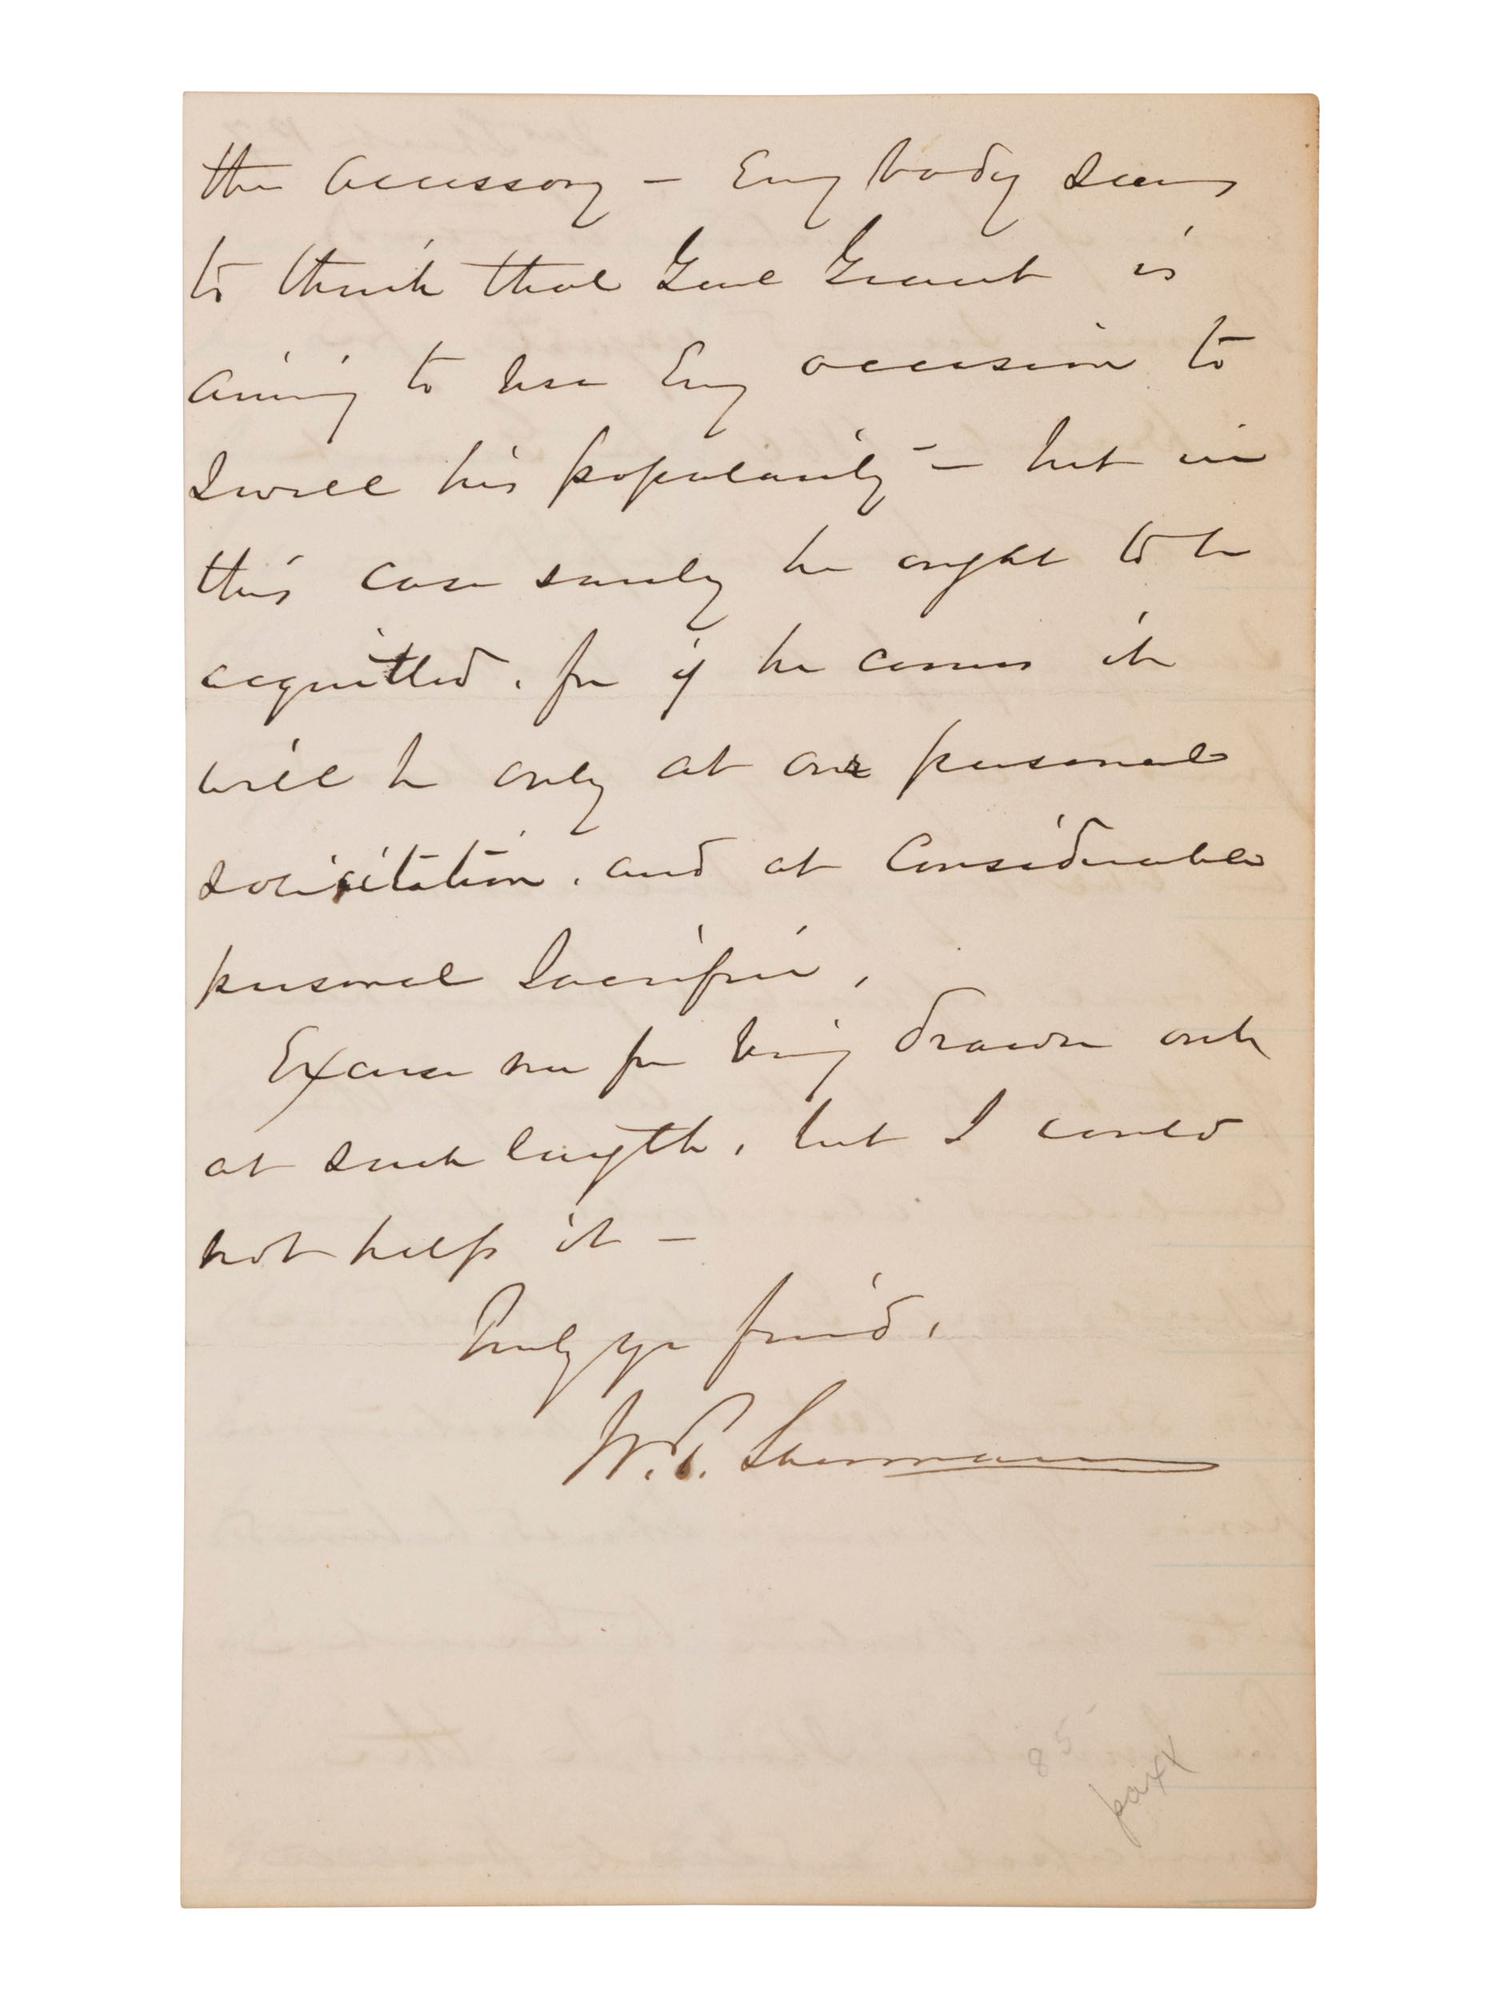 the accessory — Every body seems
to think that Genl Grant is
aiming to use Every occasion to
swell his popularity — but in
this case surely he ought to be
acquitted, for if he comes it
will be only at our personal
solicitation, and at considerable
personal Sacrifice,
Excuse me for being drawn out
at such length, but I could
not help it —
Truly yr friend,
W. T. Sherman
85